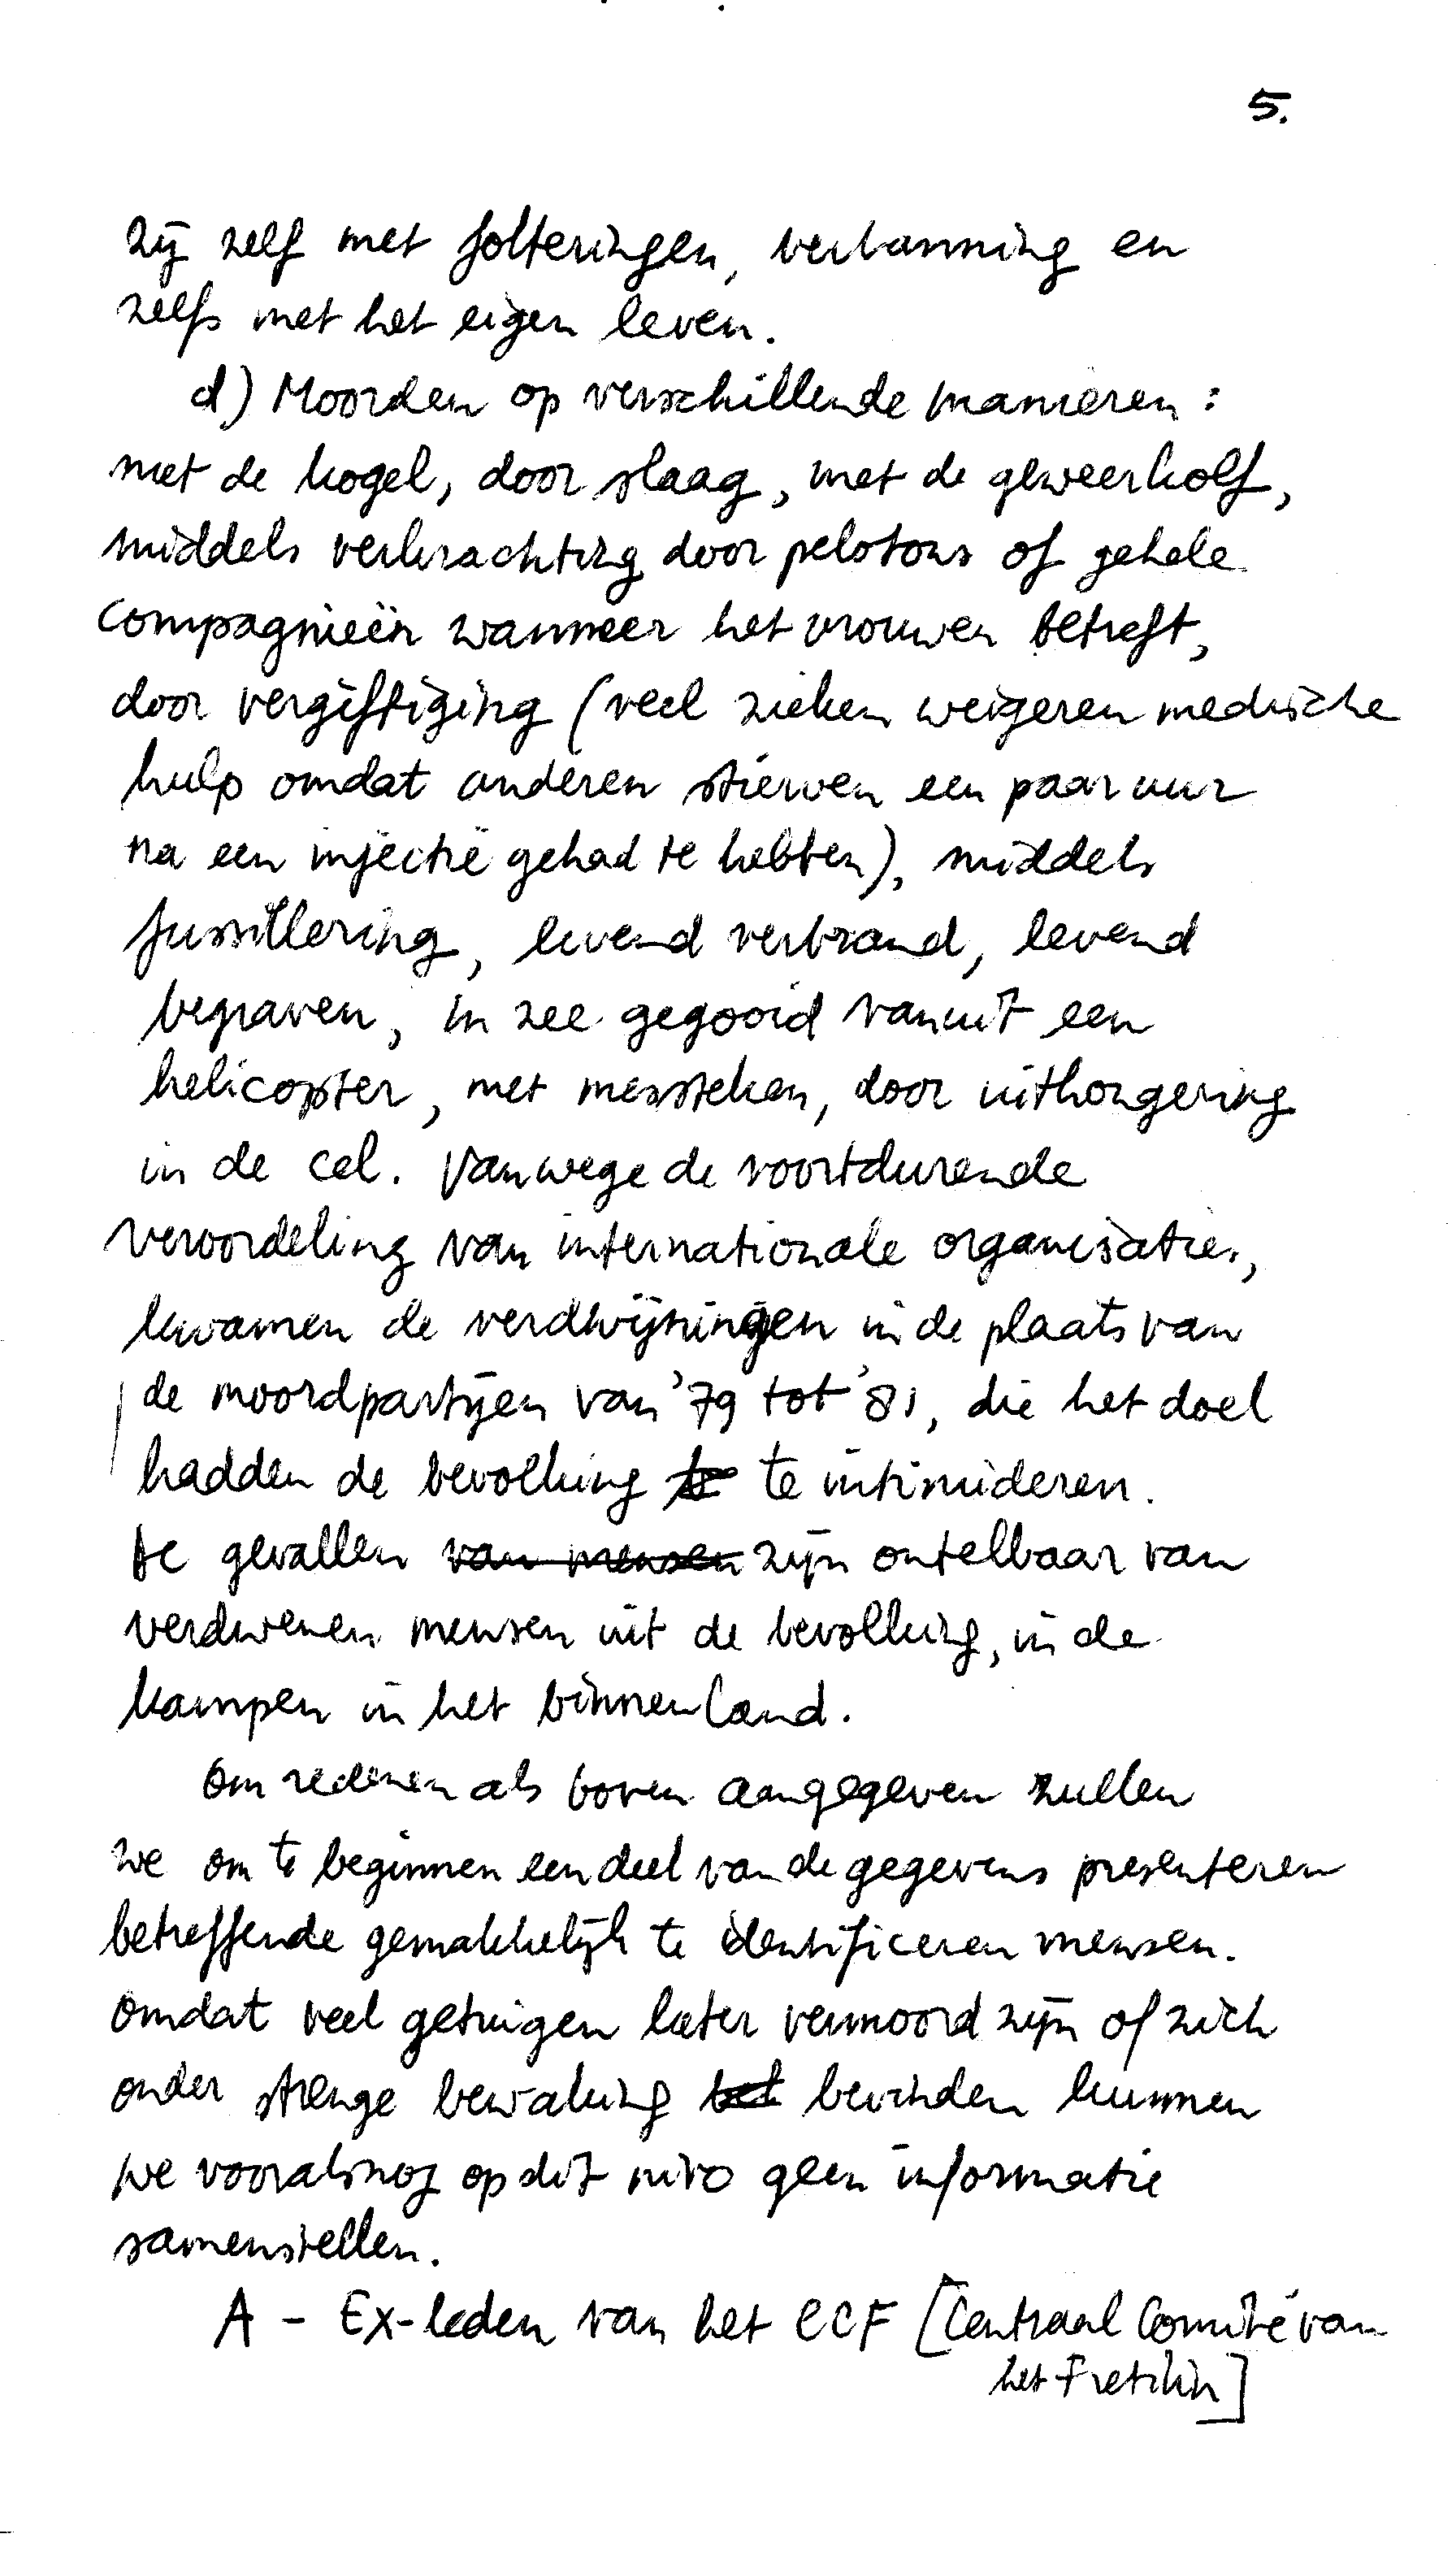 5.
zij zelf met folteringen, verbanning en
zelfs met het eigen leven.
d) Moorden op verschillende manieren:
met de kogel, door slaag, met de geweerkolf,
middels verkrachting door pelotons of gehele
compagnieën wanneer het vrouwen betreft,
door vergiftiging (veel zieken weigeren medische
hulp omdat anderen stierven een paar uur
na een injectie gehad te hebben), middels
fussillering, levend verbrand, levend
begraven, in zee gegooid vanuit een
helicopter, met messteken, door uithongering
in de cel. Vanwege de voortdurende
veroordeling van internationale organisaties,
kwamen de verdwijningen in de plaats van
de moordpartijen van '79 tot '81, die het doel
hadden de bevolking te te intimideren.
De gevallen van mensen zijn ontelbaar van
verdwenen mensen uit de bevolking, in de
kampen in het binnenland.
Om redenen als boven aangegeven zullen
we om te beginnen een deel van de gegevens presenteren
betreffende gemakkelijk te identificeren mensen.
Omdat veel getuigen later vermoord zijn of zich
onder strenge bewaking bevinden kunnen
we vooralsnog op dit nivo geen informatie
samenstellen.
A - Ex-leden van het CCF [Centraal Comité van
het Fretilin]